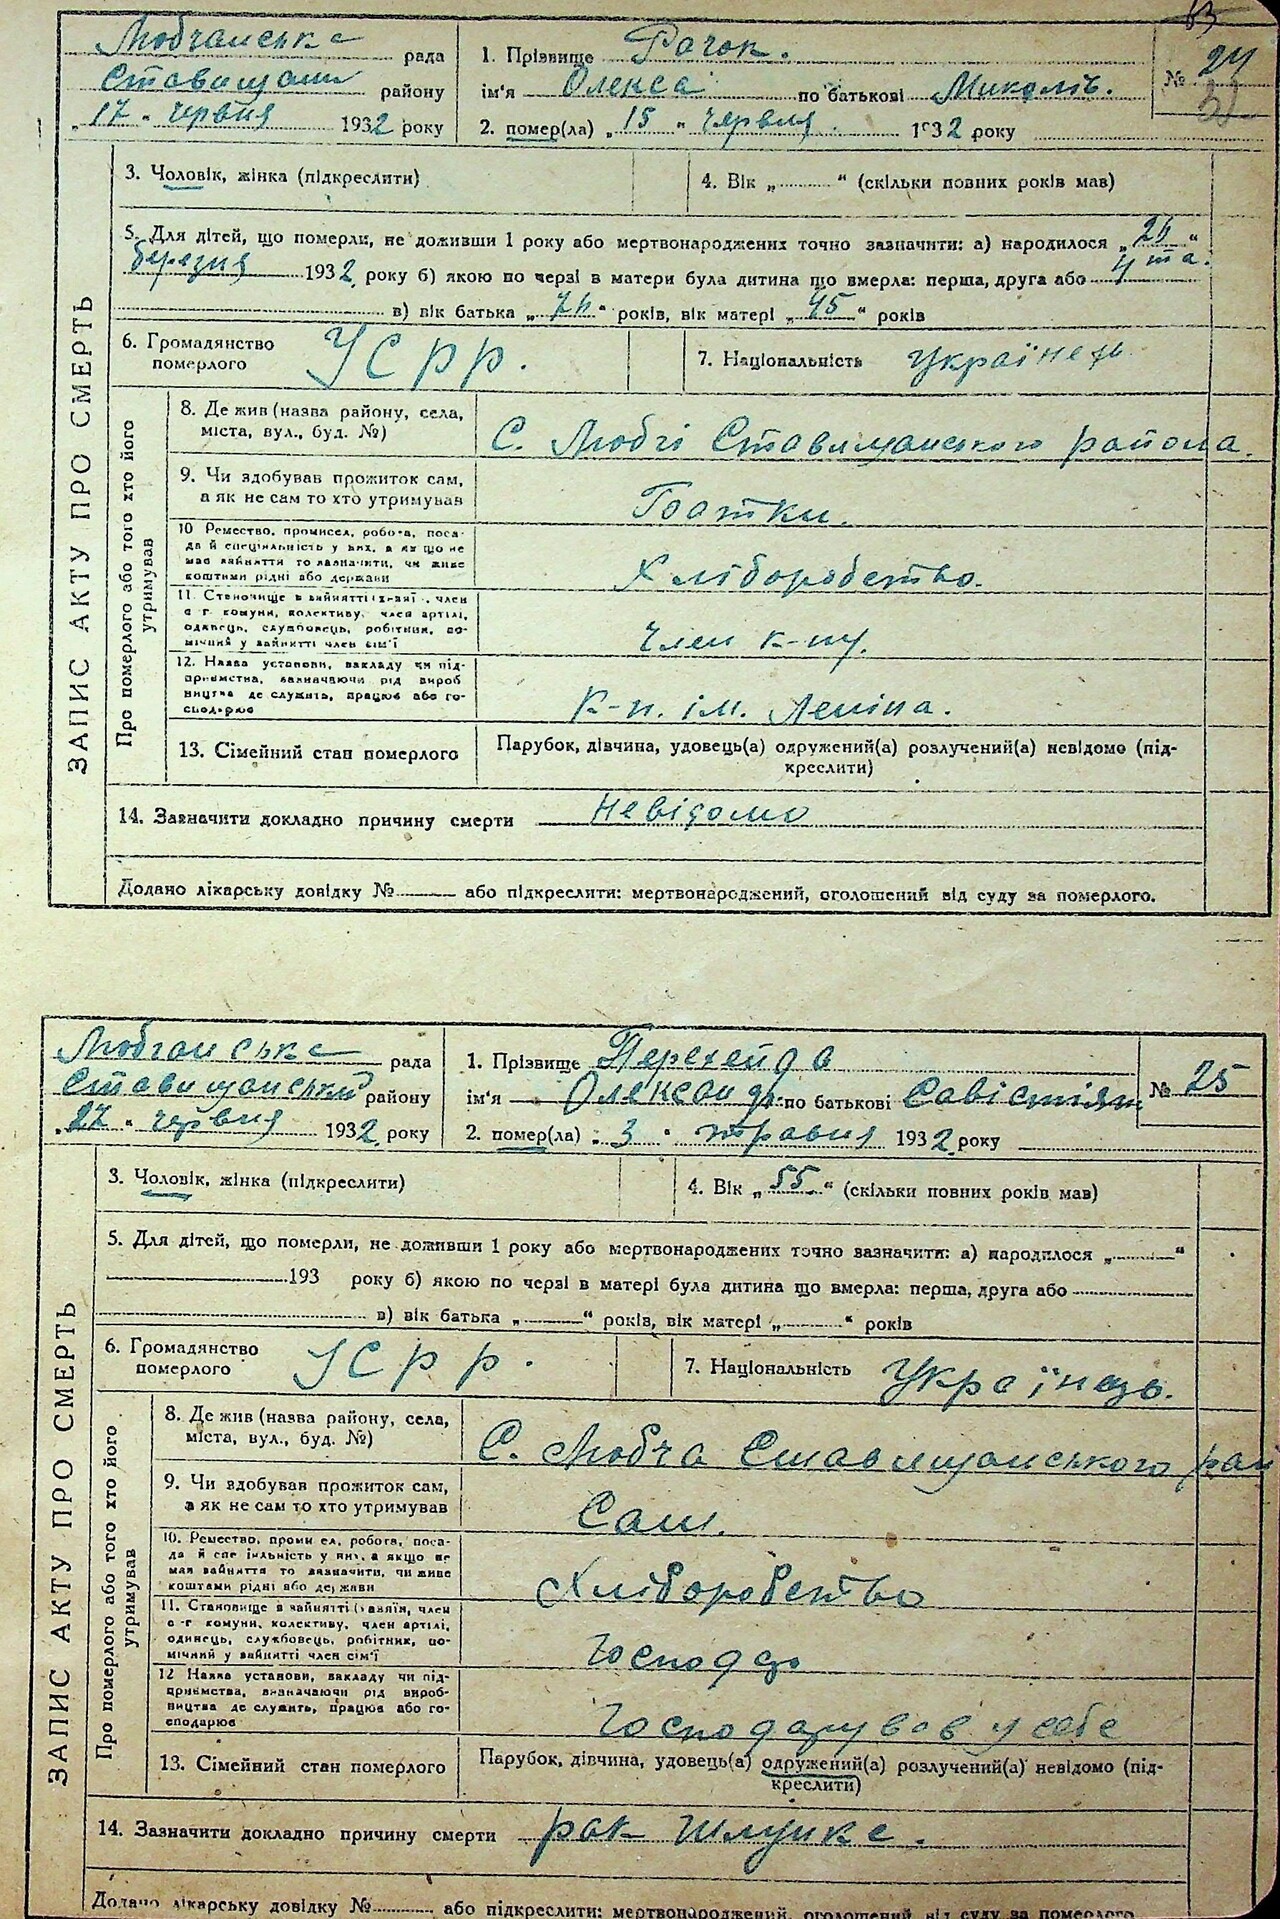 63
Любчанська рада
Ставищан району
„17" червня 1932 року
1. Прізвище Рачок.
ім'я Олекса по батькові Миколів.
2. помер(ла) „15" червня. 1932 року
№ 24
3. Чоловік, жінка (підкреслити)
4. Вік „ " (скільки повних років мав)
5. Для дітей, що померли, не доживши 1 року або мертвонароджених точно зазначити: а) народилося „ "
березня 1932 року б) якою по черзі в матери була дитина що вмерла: перша, друга або 4 та.
в) вік батька „ " років, вік матері „45" років
6. Громадянство
померлого
УСРР.
7. Національність Українець
ЗАПИС АКТУ ПРО СМЕРТЬ
Про померлого або того хто його
утримував
8. Де жив (назва району, села,
міста, вул., буд. №)
С. Любчі Ставищанського района.
9. Чи здобував прожиток сам,
а як не сам то хто утримував
Батьки.
10 Ремество, промисел, робота, поса-
да й спеціяльність у них, а якщо не
мав зайняття то зазначити, чи живе
коштами рідні або держави
Хліборобство.
11. Становище в зайнятті (хазяї , член
с г. комуни, колективу, член артілі,
одинець, службовець, робітник, по-
мічний у зайнятті член сім'ї
член к-пу.
12. Назва установи, закладу чи під-
приємства, зазначаючи рід вироб
ництва де служить, працює або го-
сподарює
К-п. ім. Леніна.
13. Сімейний стан померлого
Парубок, дівчина, удовець(а) одружений(а) розлучений(а) невідомо (під-
креслити)
14. Зазначити докладно причину смерти Невідомо
Додано лікарську довідку № або підкреслити: мертвонароджений, оголошений від суду за померлого.
Любчанська рада
Ставищанський району
„27" червня 1932 року
1. Прізвище Перехейда
ім'я Олександр по батькові
2. помер(ла) „3" травня 1932 року
№ 25
3. Чоловік, жінка (підкреслити)
4. Вік „55" (скільки повних років мав)
5. Для дітей, що померли, не доживши 1 року або мертвонароджених точно зазначити: а) народилося „ "
193 року б) якою по черзі в матері була дитина що вмерла: перша, друга або
в) вік батька „ " років, вік матері „ " років
6. Громадянство
померлого
УСРР.
7. Національність Українець.
ЗАПИС АКТУ ПРО СМЕРТЬ
Про померлого або того хто його
утримував
8. Де жив (назва району, села,
міста, вул., буд. №)
С. Любча Ставищанського рай
9. Чи здобував прожиток сам,
а як не сам то хто утримував
Сам.
10. Ремество, проми ел, робота, поса-
да й спе іяльність у них, а якщо не
мав зайняття то зазначити, чи живе
коштами рідні або держави
Хліборобство
11. Становище в зайнятті (хазяїн, член
с-г комуни, колективу, член артілі,
одинець, службовець, робітник, по-
мічний у зайнятті член сім'ї
Господар
12 Назва установи, закладу чи під-
приємства, визначаючи рід вироб-
ництва де служить, працює або го-
сподарює
Господарував у себе
13. Сімейний стан померлого
Парубок, дівчина, удовець(а) одружений(а) розлучений(а) невідомо (під-
креслити)
14. Зазначити докладно причину смерти рак шлунка.
Додано лікарську довідку № або підкреслити: мертвонароджений, оголошений від суду за померлого